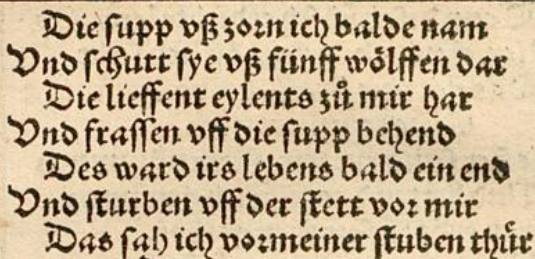 Die supp vß zorn ich balde nam
Vnd schutt sye vß fünff wölffen dar
Die lieffent eylents zů mir har
Vnd frassen vff die supp behend
Des ward irs lebens bald ein end
Vnd sturben vff der stett vor mir
Das sah ich vor meiner stuben thür